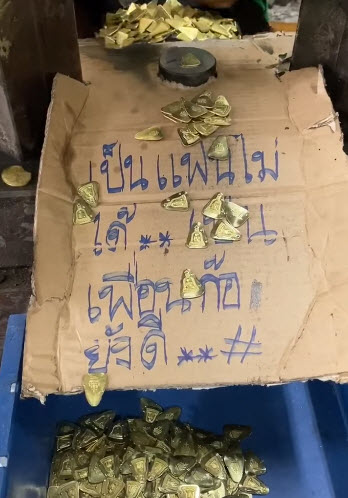 เป็นแฟนไม่
ได้**
เพื่อนก็
ยังดี**#